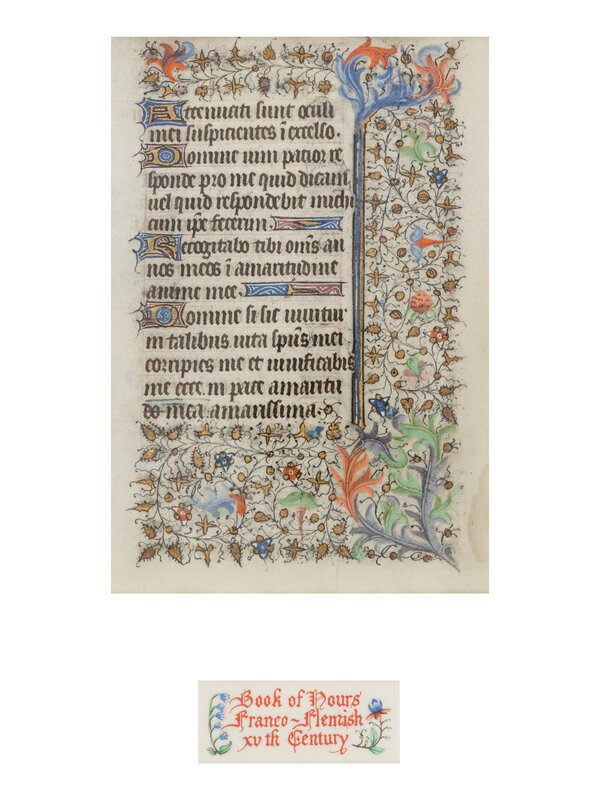 Attenuati sunt oculi
mei suspicientes ī excelso.
Domine uim patior re
sponde pro me quid dicam
uel quid respondebit michi
cum ip̄e fecerim.
Recogitabo tibi om̄s an
nos meos ī amaritudine
anime mee.
Domine si sic uiuitur
in talibus uita sp̄us mei
corripies me et uiuificabis
me ecce in pace amaritu
do mea amarissima.
Book of Hours
Franco-Flemish
xv th Century